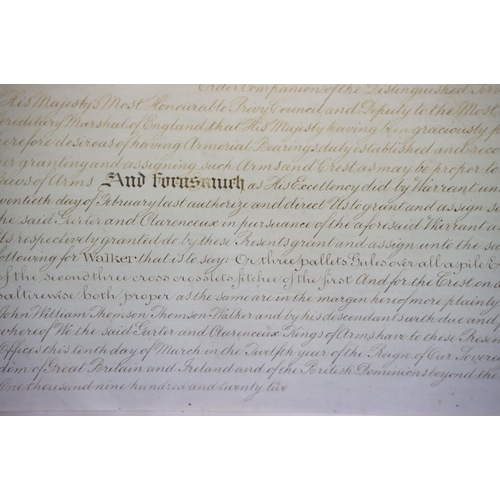 Order Companion of the Distinguished
His Majesty's Most Honourable Privy Council and Deputy to the Most
ereditary Marshal of England that His Majesty having been graciously p
herefore desirous of having Armorial Bearings duly established and reco
ur granting and assigning such Arms and Crest as may be proper to
Laws of Arms And Forasmuch as His Excellency did by Warrant un
wentieth day of February last authorize and direct Us to grant and assign s
he said Garter and Clarenceux in pursuance of the aforesaid Warrant a
Us respectively granted do by these Presents grant and assign unto the sa
ollowing for Walker that is to say Or three pallets Gules over all a pile E
of the second three cross crosslets fitchée of the first And for the Crest on a
saltirewise both proper as the same are in the margin hereof more plainly
John William Thomson Thomson-Walker and by his descendants with due and
whereof We the said Garter and Clarenceux Kings of Arms have to these Present
Offices this tenth day of March in the Twelfth year of the Reign of Our Sovere
dom of Great Britain and Ireland and of the British Dominions beyond the
One thousand nine hundred and twenty two